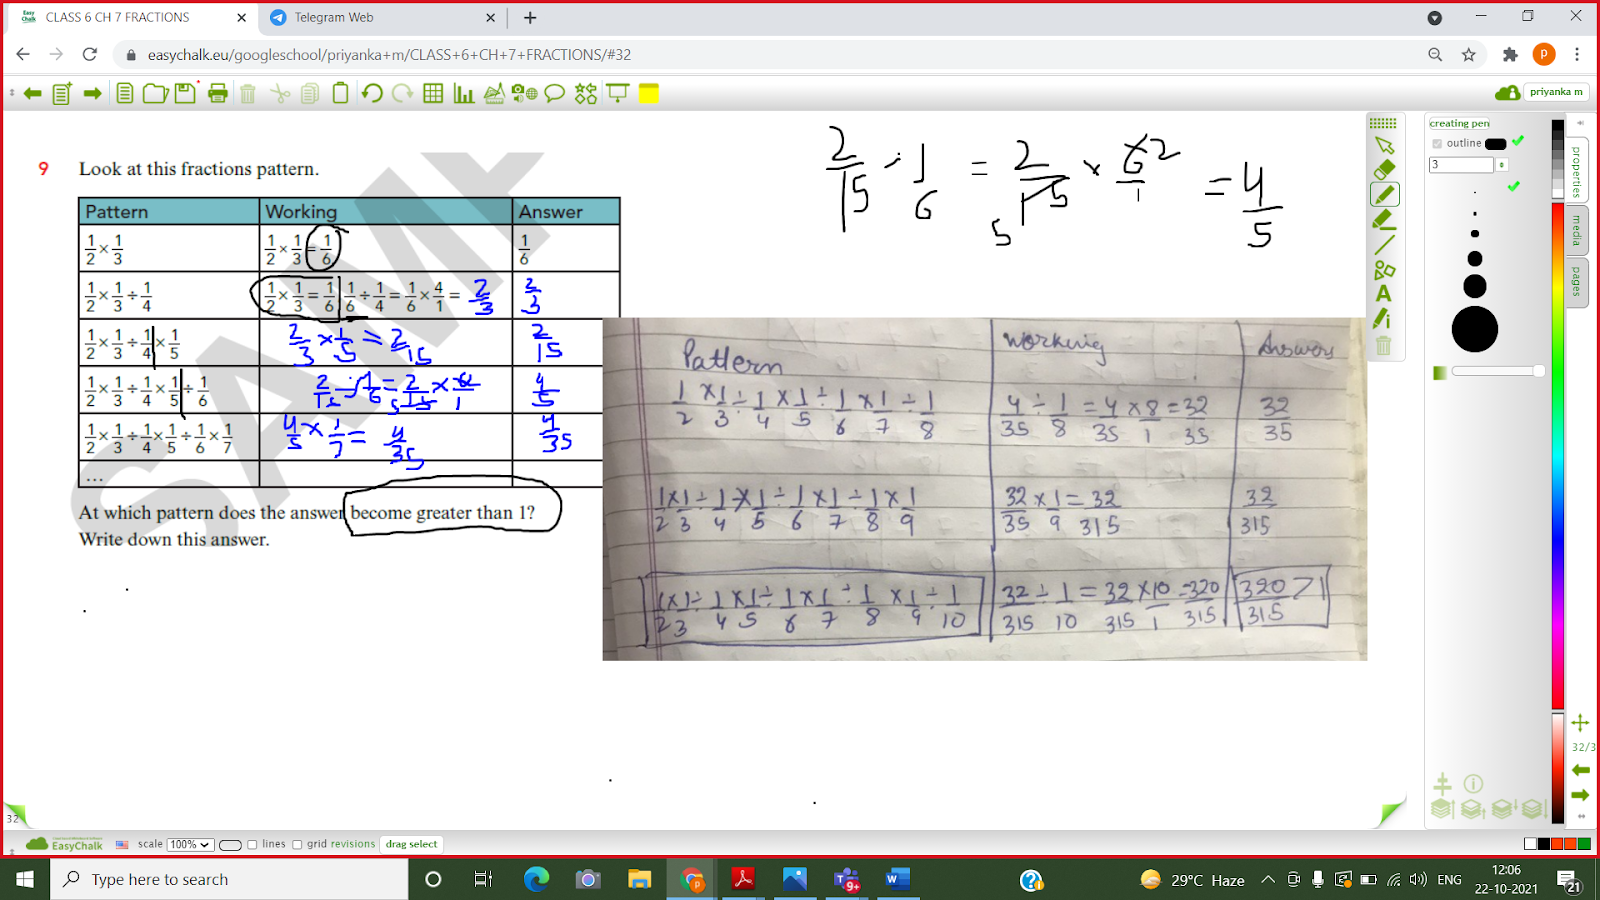 CLASS 6 CH 7 FRACTIONS
Telegram Web
easychalk.eu/googleschool/priyanka+m/CLASS+6+CH+7+FRACTIONS/#32
P
priyanka m
creating pen
outline
3
properties
media
pages
9 Look at this fractions pattern.
Pattern Working Answer
1/2 × 1/3 1/2 × 1/3 = 1/6 1/6
1/2 × 1/3 ÷ 1/4 1/2 × 1/3 = 1/6 1/6 ÷ 1/4 = 1/6 × 4/1 = 2/3 2/3
1/2 × 1/3 ÷ 1/4 × 1/5 2/3 × 1/5 = 2/15 2/15
1/2 × 1/3 ÷ 1/4 × 1/5 ÷ 1/6 2/15 ÷ 1/6 = 2/15 × 6/1 4/5
1/2 × 1/3 ÷ 1/4 × 1/5 ÷ 1/6 × 1/7 4/5 × 1/7 = 4/35 4/35
...
At which pattern does the answer become greater than 1?
Write down this answer.
SAM
2/15 ÷ 1/6 = 2/15 5 × 6/1 2 = 4/5
Pattern Working Answers
1/2 × 1/3 ÷ 1/4 × 1/5 ÷ 1/6 × 1/7 ÷ 1/8 4/35 ÷ 1/8 = 4/35 × 8/1 = 32/35 32/35
1/2 × 1/3 ÷ 1/4 × 1/5 ÷ 1/6 × 1/7 ÷ 1/8 × 1/9 32/35 × 1/9 = 32/315 32/315
1/2 × 1/3 ÷ 1/4 × 1/5 ÷ 1/6 × 1/7 ÷ 1/8 × 1/9 ÷ 1/10 32/315 ÷ 1/10 = 32/315 × 10/1 = 320/315 320/315 > 1
32/3
32
EasyChalk
scale 100% lines grid revisions drag select
Type here to search
9+
29°C Haze
ENG
12:06
22-10-2021
21